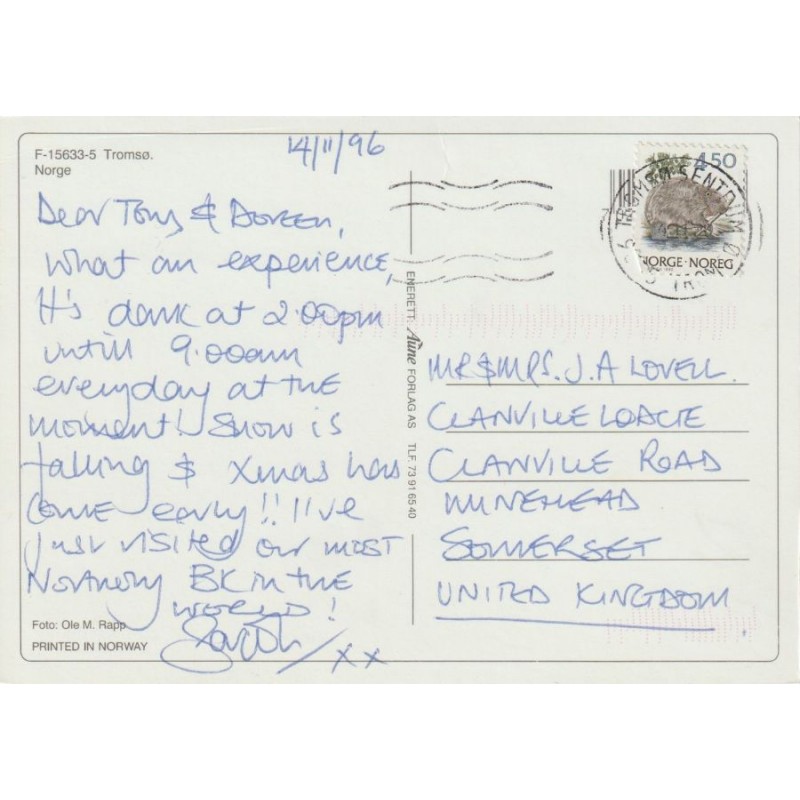 F-15633-5 Tromsø.
Norge
14/11/96
Dear Tony & Doreen,
What an experience,
It's dark at 2:00pm
untill 9.00am
everyday at the
moment! Snow is
falling & Xmas has
come early!! I've
just visited our most
Northerly BK in the
world!
Sarah/xx
Foto: Ole M. Rapp
PRINTED IN NORWAY
ENERETT: Aune FORLAG AS TLF. 73 91 65 40
450
NORGE·NOREG
TROMSØ SENTRUM
MR & MRS. J. A LOVELL.
CLANVILLE LODGE
CLANVILLE ROAD
MINEHEAD
SOMERSET
UNITED KINGDOM